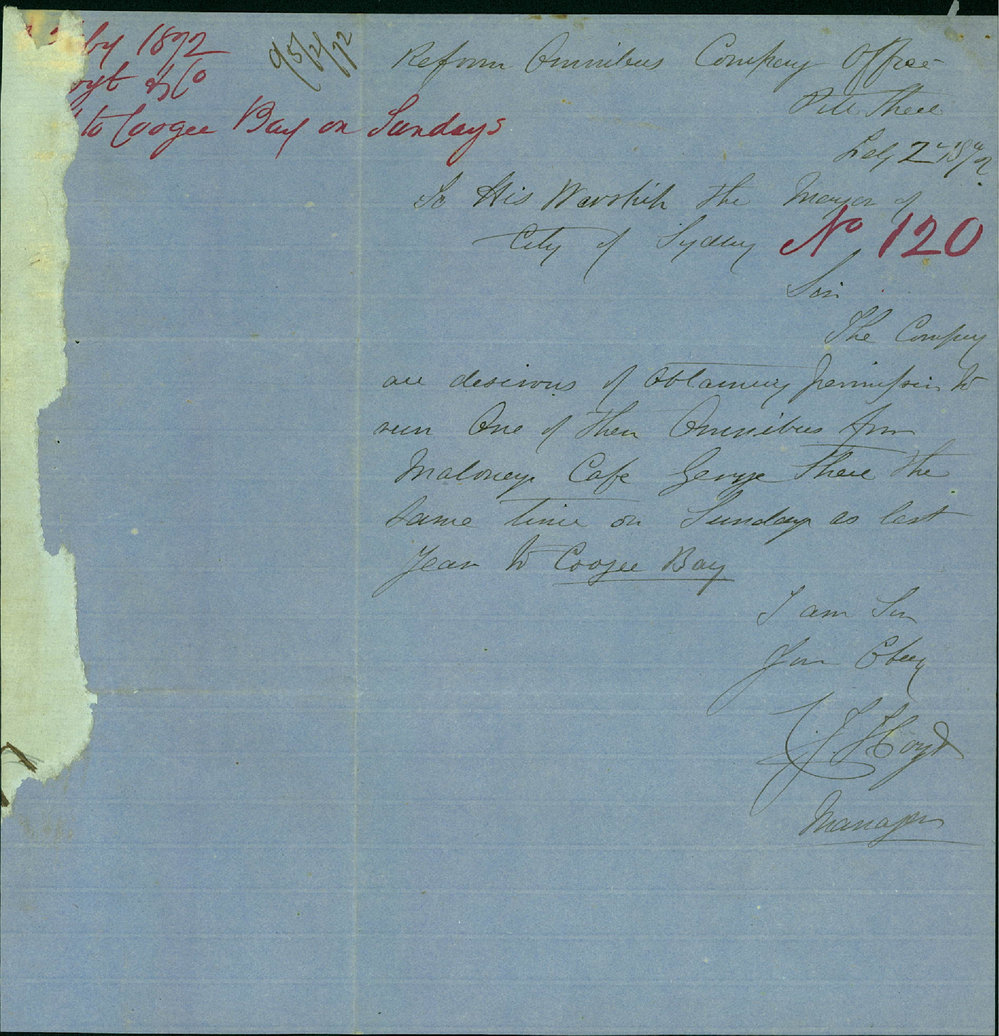 by 1872
oyt & Co
to Coogee Bay on Sundays
9/5/2/72
Reform Omnibus Company Office
Pitt Street
Feby 2nd 1872
To His Worship the Mayor of
City of Sydney
No 120
Sir
The Company
are desirous of obtaining permission to
run One of their Omnibus from
Maloneys Cafe George Street the
same time on Sundays as last
Year to Coogee Bay
I am Sir
Your Obey
Hoyt
Manager